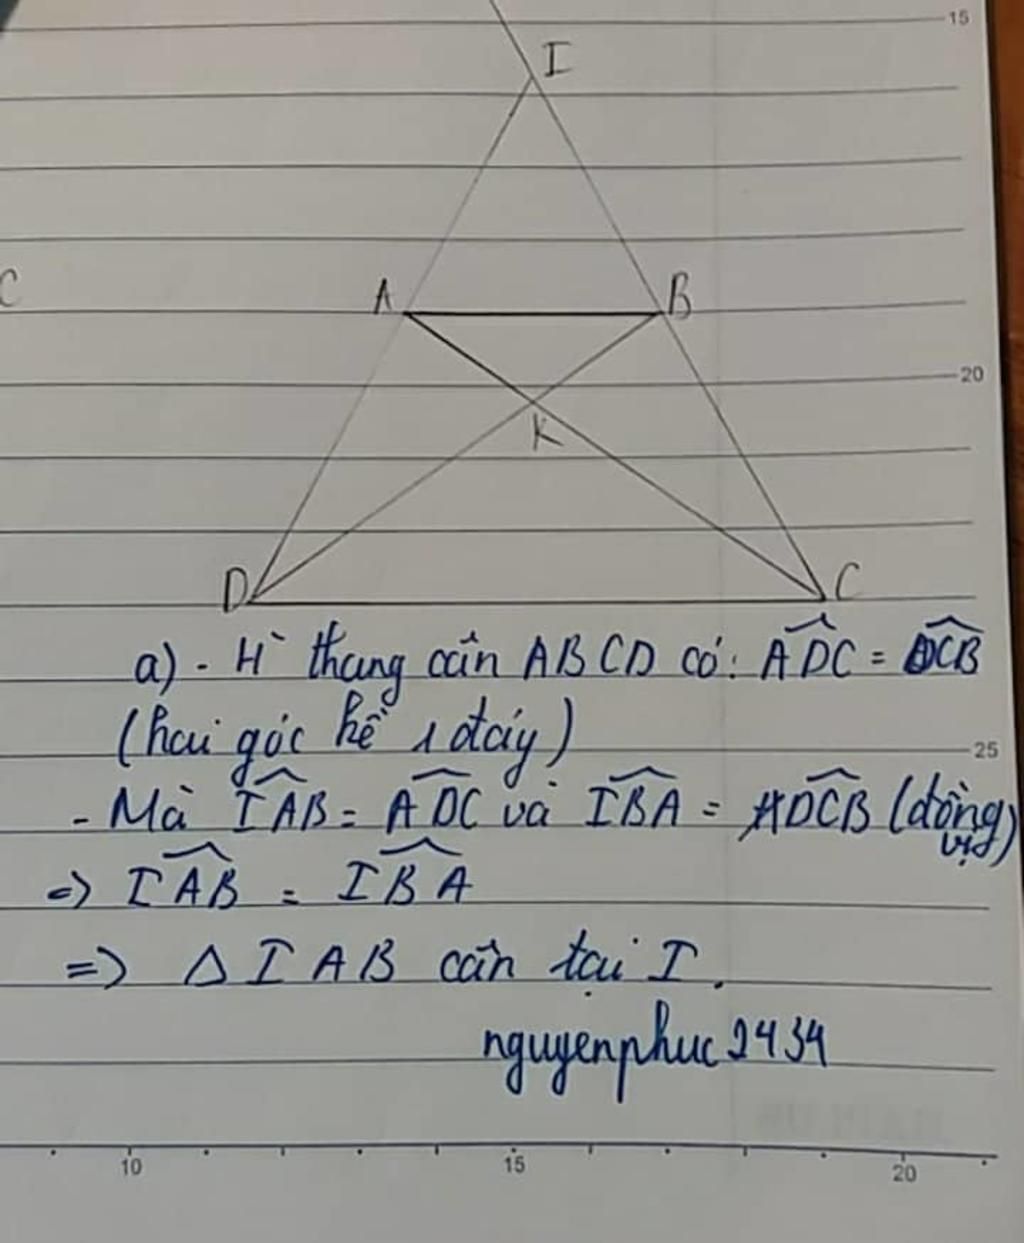 15
I
C
A
B
20
K
D
C
a) - H` thang cân ABCD có: ADC = DCB
(hai góc kề 1 đáy)
25
- Mà IAB = ADC và IBA = DCB (đồng vị)
=> IAB = IBA
=> Δ IAB cân tại I.
nguyenphuc2434
10
15
20